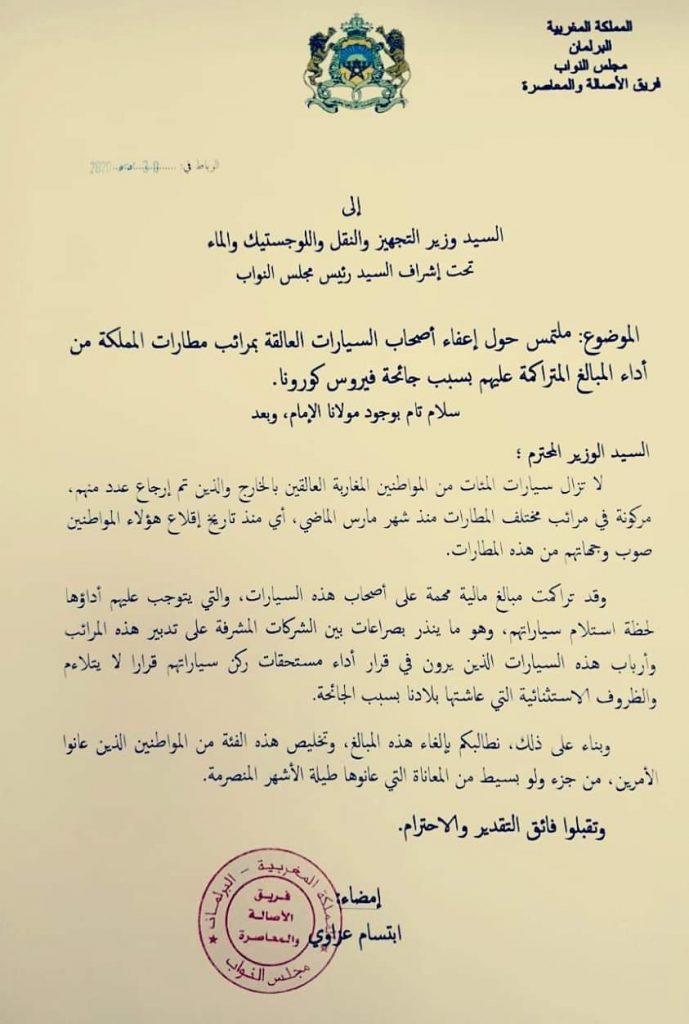 المملكة المغربية
البرلمان
مجلس النواب
فريق الأصالة والمعاصرة
الرباط في: 30 2020
إلى
السيد وزير التجهيز والنقل واللوجستيك والماء
تحت إشراف السيد رئيس مجلس النواب
الموضوع: ملتمس حول إعفاء أصحاب السيارات العالقة بمرائب مطارات المملكة من
أداء المبالغ المتراكمة عليهم بسبب جائحة فيروس كورونا.
سلام تام بوجود مولانا الإمام، وبعد
السيد الوزير المحترم ؛
لا تزال سيارات المئات من المواطنين المغاربة العالقين بالخارج والذين تم إرجاع عدد منهم،
مركونة في مرائب مختلف المطارات منذ شهر مارس الماضي، أي منذ تاريخ إقلاع هؤلاء المواطنين
صوب وجهاتهم من هذه المطارات.
وقد تراكمت مبالغ مالية مهمة على أصحاب هذه السيارات، والتي يتوجب عليهم أداؤها
لحظة استلام سياراتهم، وهو ما ينذر بصراعات بين الشركات المشرفة على تدبير هذه المرائب
وأرباب هذه السيارات الذين يرون في قرار أداء مستحقات ركن سياراتهم قرارا لا يتلاءم
والظروف الاستثنائية التي عاشتها بلادنا بسبب الجائحة.
وبناء على ذلك، نطالبكم بإلغاء هذه المبالغ، وتخليص هذه الفئة من المواطنين الذين عانوا
الأمرين، من جزء ولو بسيط من المعاناة التي عانوها طيلة الأشهر المنصرمة.
وتقبلوا فائق التقدير والاحترام.
إمضاء:
ابتسام عزاوي
المملكة المغربية - البرلمان
فريق
الأصالة
والمعاصرة
مجلس النواب